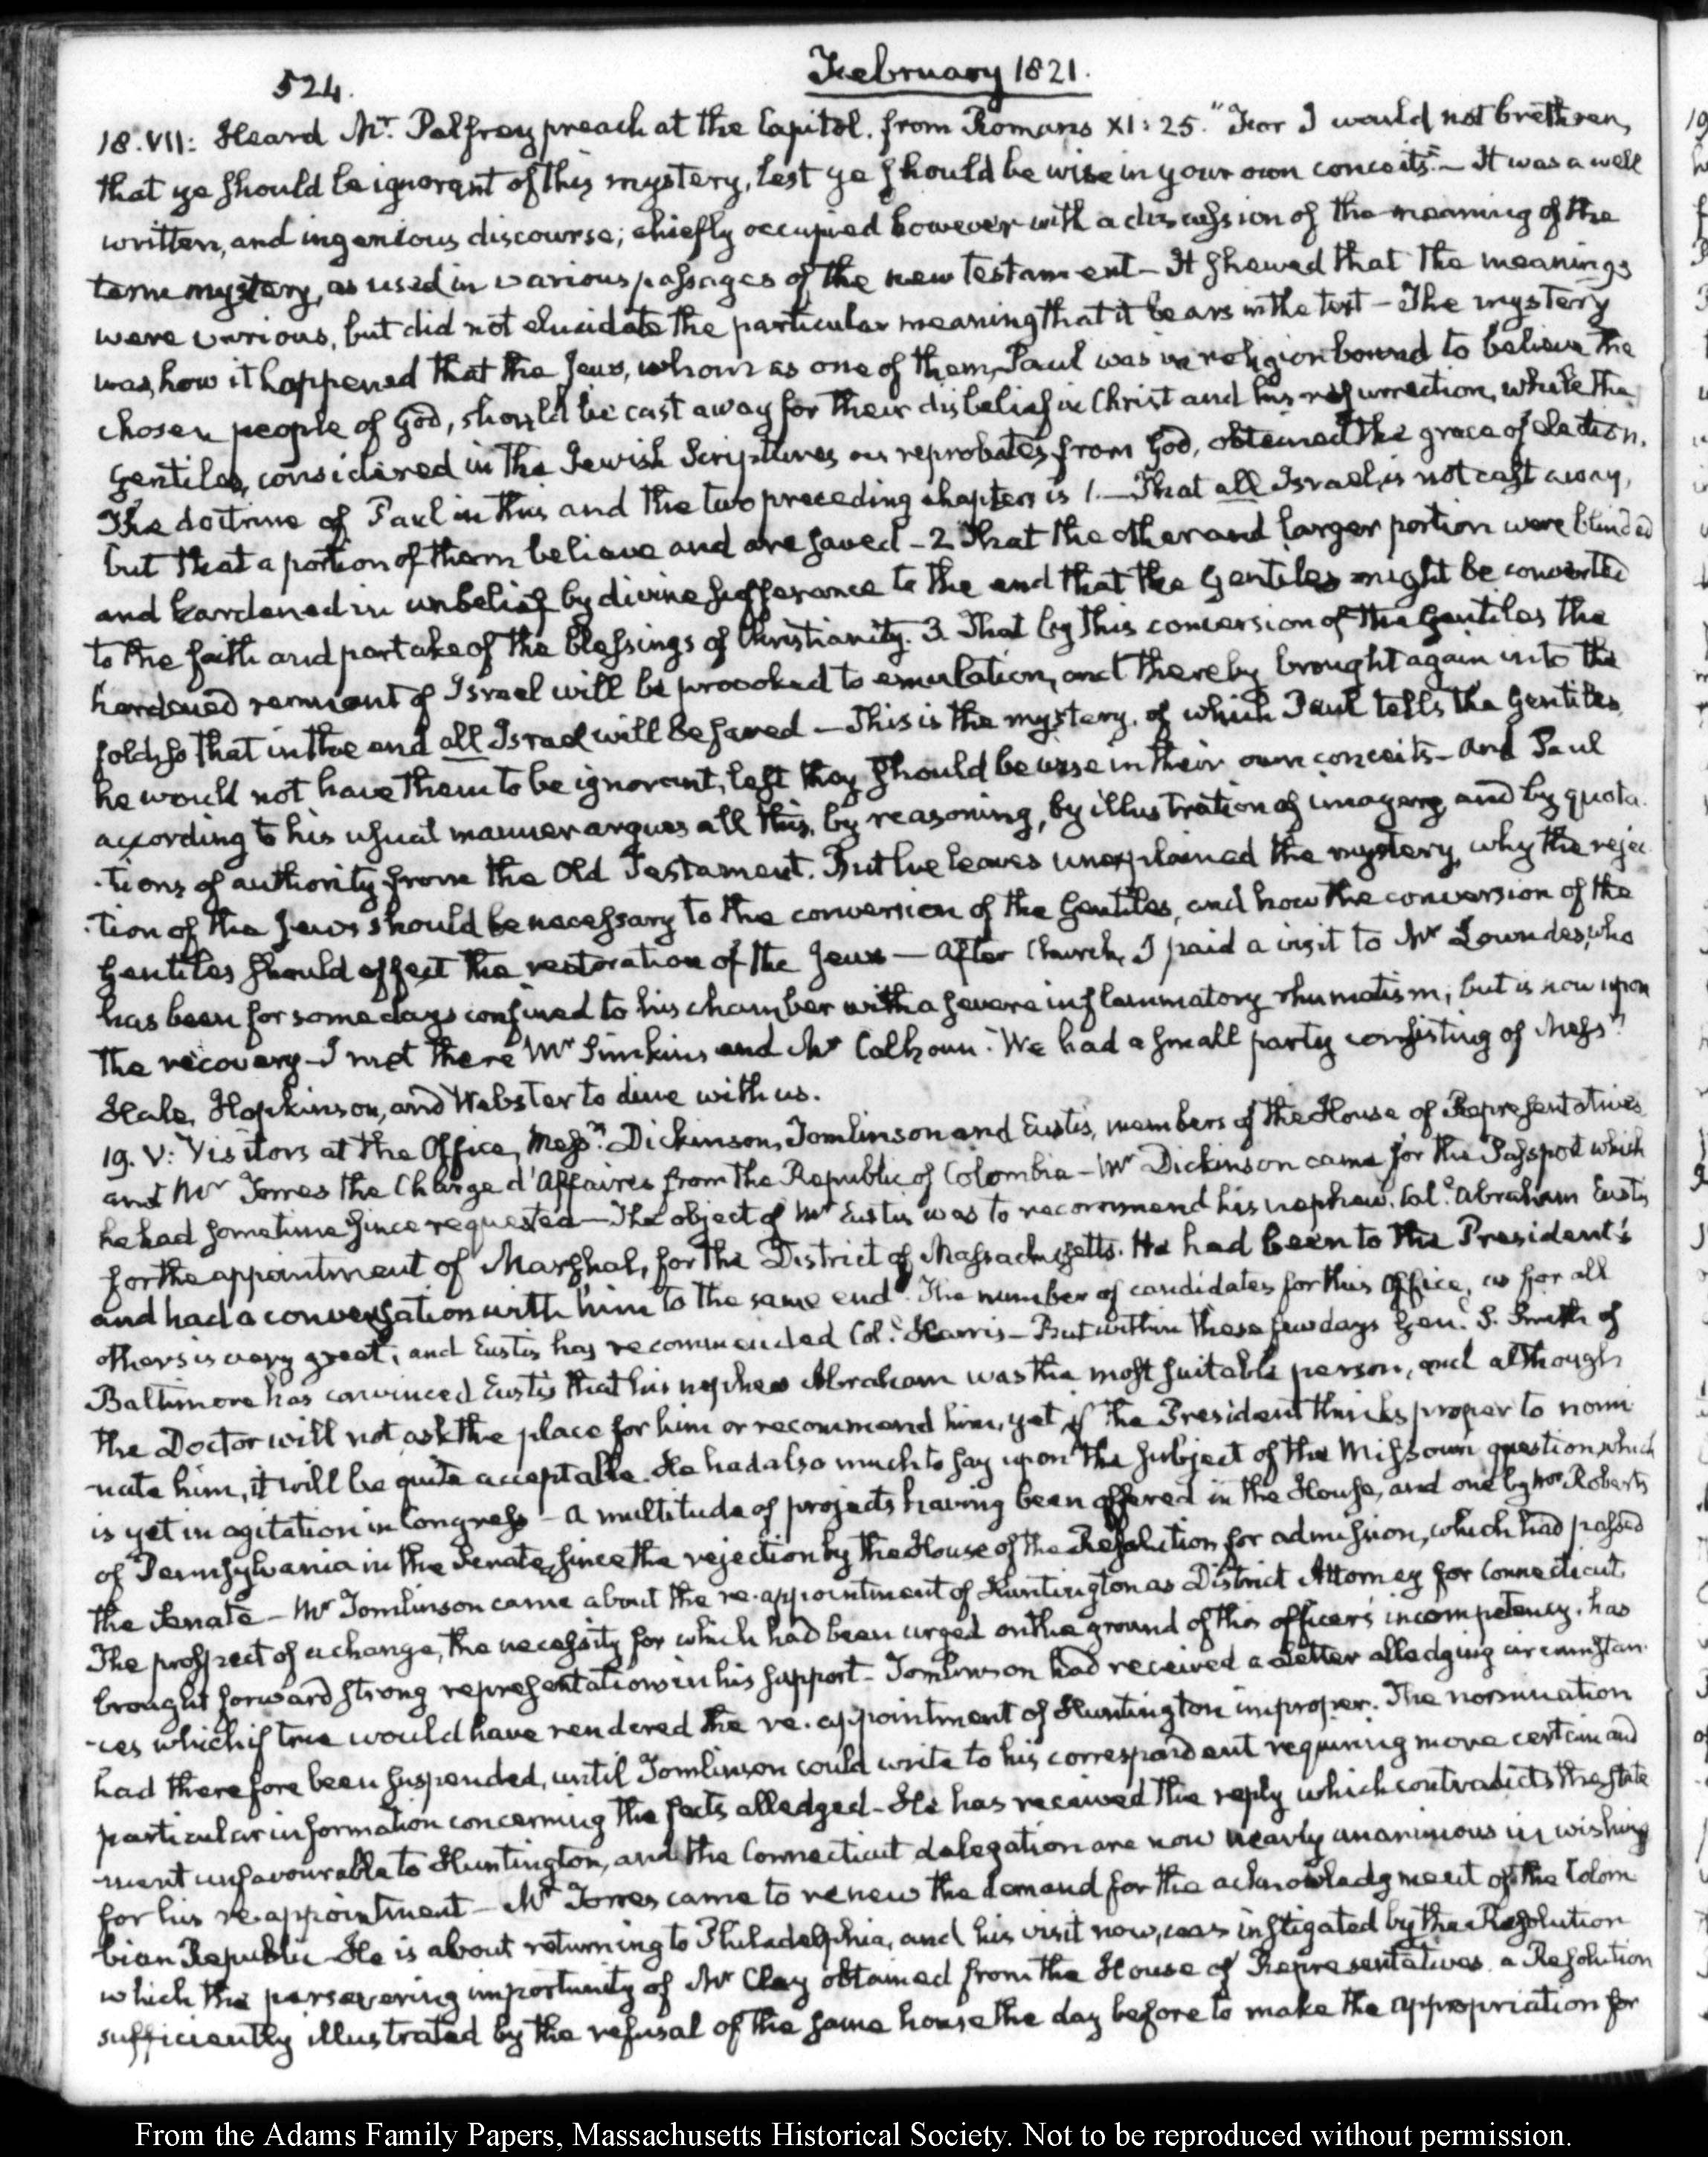 524.
February 1821.
18. VII: Heard Mr. Palfrey preach at the Capitol. from Romans XI: 25. "For I would not brethren,
that ye should be ignorant of this mystery, lest ye should be wise in your own conceits" — It was a well
written, and ingenious discourse; chiefly occupied however with a discussion of the meaning of the
term mystery, as used in various passages of the new testament — It shewed that the meanings
were various, but did not elucidate the particular meaning that it bears in the text — The mystery
was, how it happened that the Jews, whom as one of them, Paul was in religion bound to believe the
chosen people of God, should be cast away for their disbelief in Christ and his resurrection, while the
Gentiles, considered in the Jewish Scriptures as reprobates from God, obtained the grace of election.
The doctrine of Paul in this and the two preceding chapters is 1. — That all Israel, is not cast away,
but that a portion of them believe and are saved — 2 That the other and larger portion were blinded
and hardened in unbelief by divine sufferance to the end that the Gentiles might be converted
to the faith and partake of the blessings of Christianity. 3. That by this conversion of the Gentiles the
hardened remnant of Israel will be provoked to emulation, and thereby brought again into the
fold, so that in the end all Israel will be saved — This is the mystery, of which Paul tells the Gentiles
he would not have them to be ignorant, lest they should be wise in their own conceits — And Paul
according to his usual manner argues all this, by reasoning, by illustration of imagery, and by quota-
-tions of authority from the Old Testament. But he leaves unexplained the mystery, why the rejec-
-tion of the Jews should be necessary to the conversion of the Gentiles, and how the conversion of the
Gentiles should effect the restoration of the Jews — After Church, I paid a visit to Mr Lowndes, who
has been for some days confined to his chamber with a severe inflammatory rhumatism; but is now upon
the recovery — I met there Mr Simkins and Mr Calhoun. We had a small party consisting of Messrs
Hale, Hopkinson, and Webster to dine with us.
19. V: Visitors at the Office, Messrs Dickinson, Tomlinson and Eustis, members of the House of Representatives
and Mr Torres the Chargé d'Affaires from the Republic of Colombia — Mr Dickinson came for the Passport which
he had sometime since requested — The object of Mr Eustis was to recommend his nephew. Col. Abraham Eustis
for the appointment of Marshal, for the District of Massachusetts. He had been to the President's
and had a conversation with him to the same end. The number of candidates for this Office, as for all
others is very great; and Eustis has recommended Col. Harris — But within these few days Genl. S. Smith of
Baltimore has convinced Eustis that his nephew Abraham was the most suitable person, and although
the Doctor will not ask the place for him or recommend him, yet if the President thinks proper to nomi-
-nate him, it will be quite acceptable. He had also much to say upon the subject of the Missouri question, which
is yet in agitation in Congress — a multitude of projects having been offered in the House, and one by Mr. Roberts
of Pennsylvania in the Senate, since the rejection by the House of the Resolution for admission, which had passed
the Senate — Mr Tomlinson came about the re-appointment of Huntington as District Attorney for Connecticut.
The prospect of a change, the necessity for which had been urged on the ground of this officer's incompetency, has
brought forward strong representations in his support — Tomlinson had received a letter alledging circumstan-
-ces which if true would have rendered the re-appointment of Huntington improper. The nomination
had therefore been suspended, until Tomlinson could write to his correspondent requiring more certain and
particular information concerning the facts alledged — He has received the reply which contradicts the state
-ment unfavourable to Huntington, and the Connecticut delegation are now nearly unanimous in wishing
for his re-appointment — Mr Torres came to renew the demand for the acknowledgment of the Colom-
bian Republic. He is about returning to Philadelphia, and his visit now, was instigated by the Resolution
which the persevering importunity of Mr Clay obtained from the House of Representatives. a Resolution
sufficiently illustrated by the refusal of the same house the day before to make the appropriation for
From the Adams Family Papers, Massachusetts Historical Society. Not to be reproduced without permission.